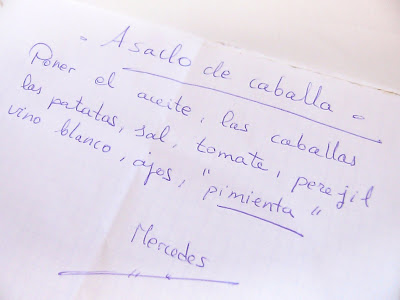 - Asado de caballa -
Poner el aceite, las caballas
las patatas, sal, tomate, perejil
vino blanco, ajos, "pimienta"
Mercedes